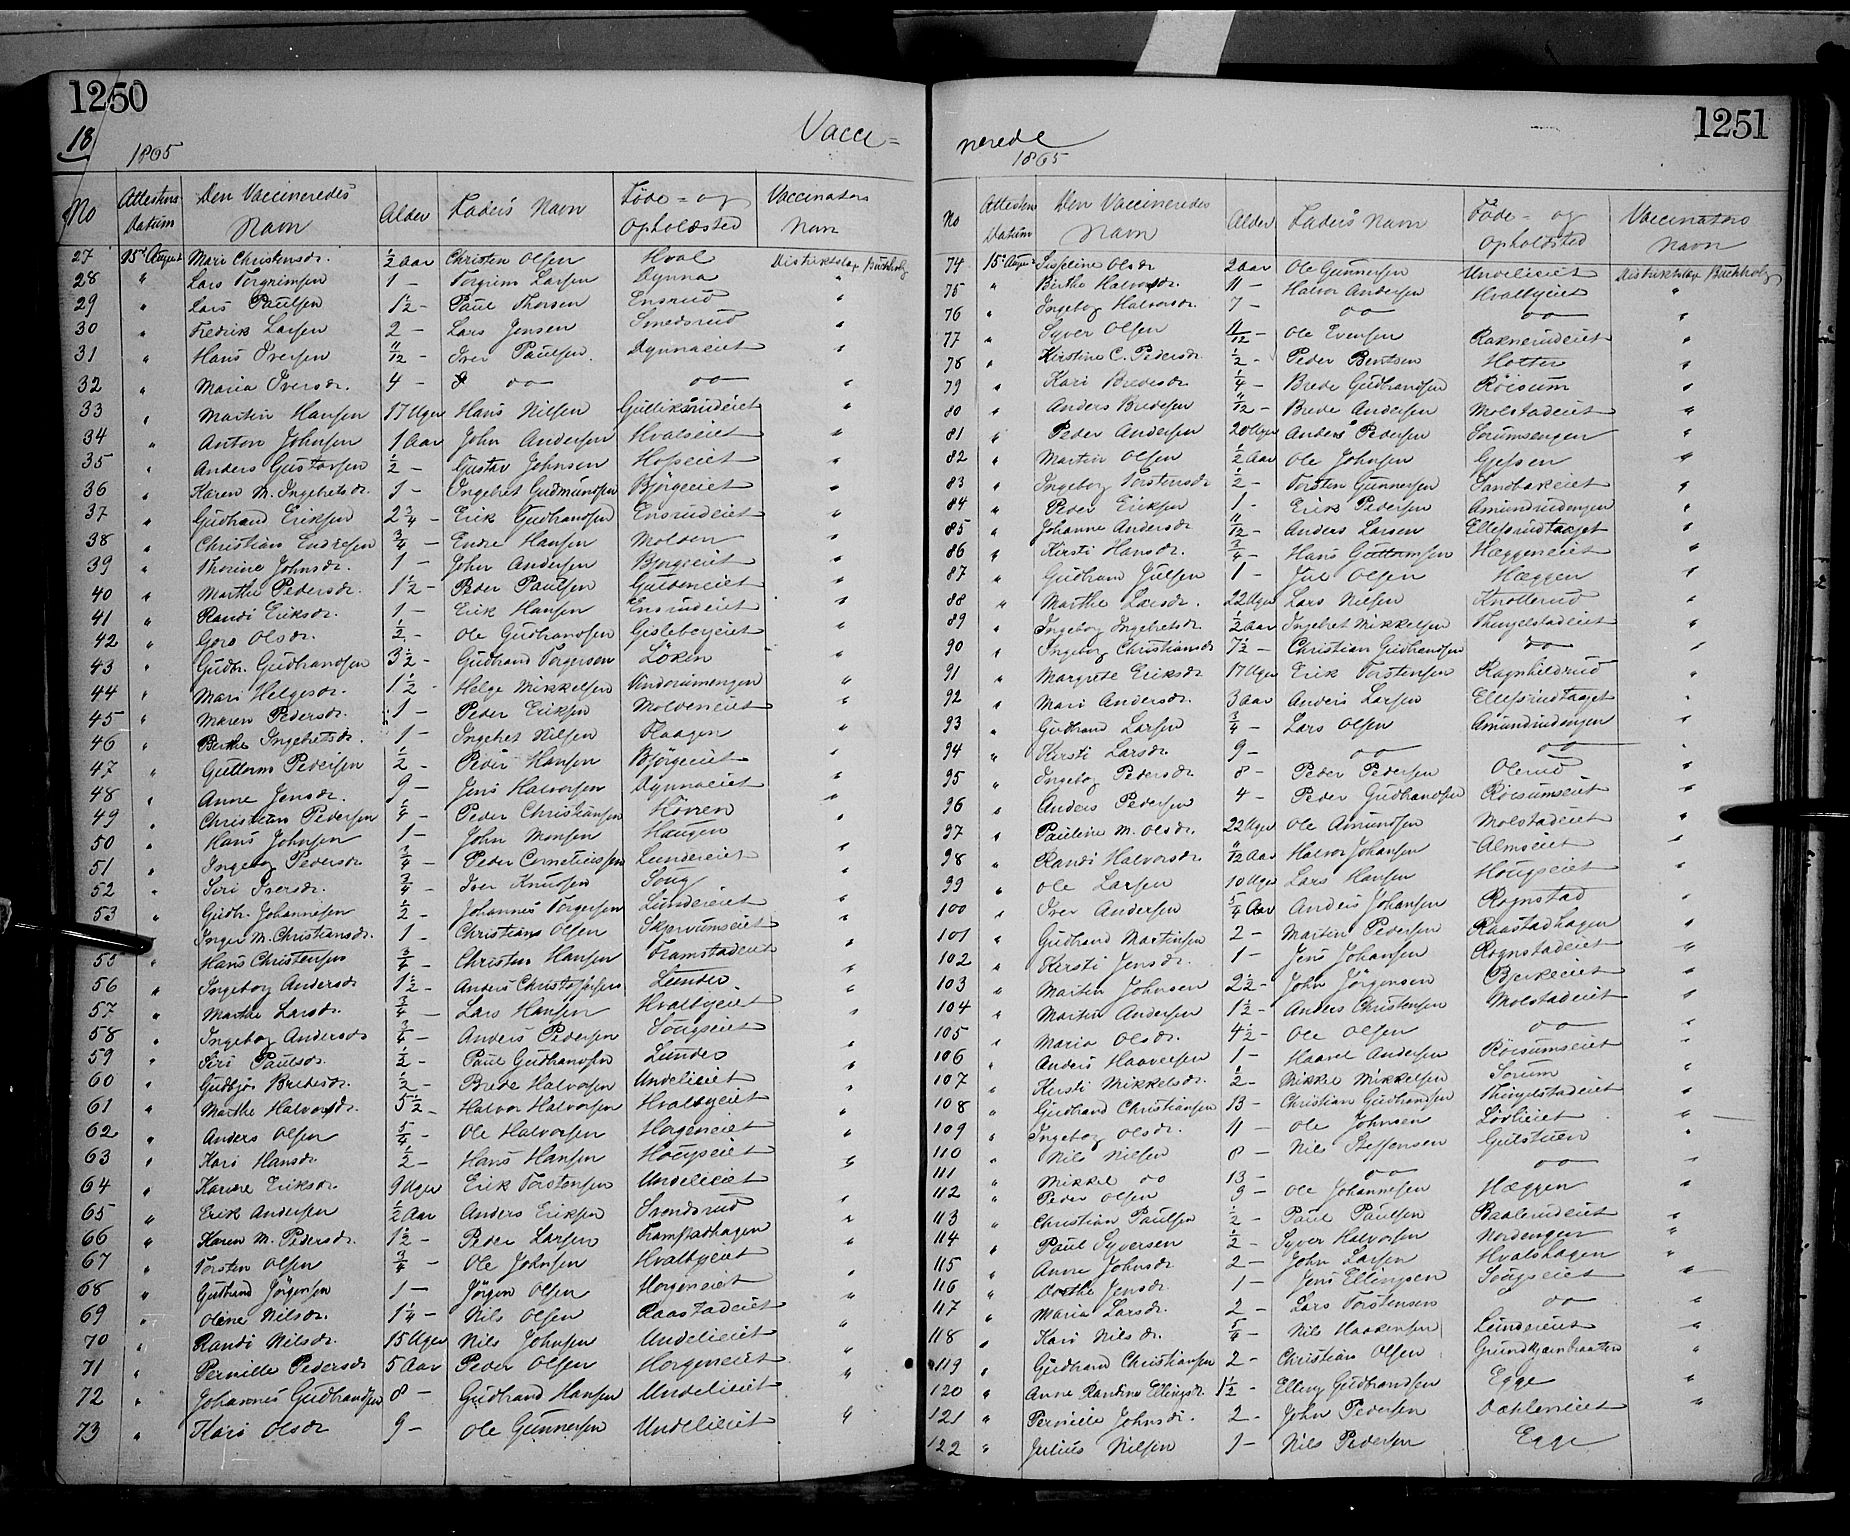 1250
18
1865
Vacci=
No Attestens Datum Den Vaccineredes Navn Alder Faders Navn Føde= og Opholdsted Vaccinators Navn
27 15de August Mari Christensdr. ½ Aar Christen Olsen Hval Distriktslæge Buchholz
28 " Lars Torgrimsen 1 - Torgrim Larsen Dynna "
29 " Lars Paulsen 1½ - Paul Thorsen Ensrud "
30 " Fredrik Larsen 2 - Lars Jensen Smedsrud "
31 " Hans Iversen 11/12 - Iver Paulsen Dynnaeiet "
32 " Maria Iversdr. 4 - do do "
33 " Martin Hansen 17 Uger Hans Nilsen Gulliksrudeiet "
34 " Anton Johnsen 1 Aar John Andersen Hvalseiet "
35 " Anders Gustavsen ½ - Gustav Johnsen Hofseiet "
36 " Karen M. Ingebretsdr. 1 - Ingebret Gudmundsen Bjørgeeiet "
37 " Gudbrand Eriksen 2¾ - Erik Gudbrandsen Ensrudeiet "
38 " Christian Endresen ¾ - Endre Hansen Molden "
39 " Thorine Johnsdr. 1 - John Andersen Bjørgeeiet "
40 " Marthe Pedersdr. 1½ - Peder Paulsen Guldeneiet "
41 " Randi Eriksdr. 1 - Erik Hansen Ensrudeiet "
42 " Goro Olsdr. ½ - Ole Gudbrandsen Gislebyeiet "
43 " Gudbr. Gudbrandsen 3½ - Gudbrand Torgersen Løken "
44 " Mari Helgesdr. 1½ - Helge Mikkelsen Vindorumengen "
45 " Maren Pedersdr. 1 - Peder Eriksen Moldeneiet "
46 " Berthe Ingebretsdr. 1 - Ingebret Nilsen Flaagen "
47 " Guttorm Pedersen ½ - Peder Hansen Bjørgeeiet "
48 " Anne Jensdr. 9 - Jens Halvorsen Dynnaeiet "
49 " Christian Pedersen ¼ - Peder Christiansen Horren "
50 " Hans Johnsen 1 - John Monsen Haugen "
51 " Ingeborg Pedersdr ¾ - Peder Corneliussen Lundereiet "
52 " Siri Iversdr. ¾ - Iver Knudsen Soug "
53 " Gudbr. Johannesen ½ - Johannes Torgersen Lundereiet "
" Inger M. Christiansdr. 1 - Christian Olsen Skjervumseiet "
55 " Hans Christensen ¾ - Christen Hansen Framstadeiet "
56 " Ingeborg Andersdr 1½ - Anders Christophersen Lunder "
57 " Marthe Larsdr. ¾ - Lars Hansen Hvalbyeiet "
58 " Ingeborg Andersdr ¾ - Anders Pedersen Sougseiet "
59 " Siri Paulsdr. ½ - Paul Gudbrandsen Lunder "
60 " Gudbjør Bredesdr. ½ - Brede Halvorsen Undelieiet "
61 " Marthe Halvorsdr. 5½ - Halvor Halvorsen Hvalbyeiet "
62 " Anders Olsen 5/4 - Ole Halvorsen Horgeneiet "
63 " Kari Hansdr. ½ - Hans Hansen Hougseiet "
64 " Karine Eriksdr 9 Uger Erik Torstensen Undelieiet
65 " Erik Andersen ½ Aar Anders Eriksen Svendsrud "
66 " Karen M. Pedersdr. 1½ - Peder Larsen Framstadhagen "
67 " Torsten Olsen ¾ - Ole Johnsen Hvalbyeiet "
68 " Gudbrand Jørgensen 1 - Jørgen Olsen Horgeneiet "
69 " Olene Nilsdr. 1¼ - Nils Olsen Raastadeiet "
70 " Randi Nilsdr. 15 Uger Nils Johnsen Undelieiet "
71 " Pernille Pedersdr 5 Aar Peder Olsen Horgeneiet "
72 " Johannes Gudbrandsen 8 - Gudbrand Hansen Undelieiet "
73 " Kari Olsdr 9 - Ole Gunnersen Undelieiet "
1251
nerede
1865
No Attestens Datum Den Vaccineredes Navn Alder Faders Navn Føde= og Opholdsted Vaccinators Navn
74 15de August Olsdr 2 Aar Ole Gunnersen Undelieiet Distriktslæge Buchholz
75 " Birthe Halvorsdr 11 - Halvor Andersen Hvalbyeiet "
76 " Ingeborg Halvorsdr. 7 - do do "
77 " Syver Olsen 11/12 - Ole Evensen Raknerudeiet "
78 " Kirstine C. Pedersdr. ½ - Peder Bentsen Hotter "
79 " Kari Bredesdr ¼ - Brede Gudbrandsen Røisum "
80 " Anders Bredesen 11/12 - Brede Andersen Molstadeiet "
81 " Peder Andersen 20 Uger Anders Pedersen Sorumsengen "
82 " Martin Olsen ½ Aar Ole Johnsen Gjefsen "
83 " Ingeborg Torstensdr ½ - Torsten Gunnersen Sandbakeiet "
84 " Peder Eriksen 1 - Erik Pedersen Amundrudengen "
85 " Johanne Andersdr 11/12 - Anders Larsen Ellefsrudtaget "
86 " Kirsti Hansdr. ¾ - Hans Guttormsen Hæggeneiet "
87 " Gudbrand Julsen 1 - Jul Olsen Hæggen "
88 " Marthe Larsdr. 22 Uger Lars Nilsen Knotterud "
89 " Ingeborg Ingebretsdr. ½ Aar Ingebret Mikkelsen Thingelstadeiet "
90 " Ingeborg Christiansdr 7½ - Christian Gudbrandsen do "
91 " Margrete Eriksdr 17 Uger Erik Torstensen Ragnhildrud "
92 " Mari Andersdr. 3 Aar Anders Larsen Ellefsrudtaget "
93 " Gudbrand Larsen ¾ - Lars Olsen Amundrudengen "
94 " Kirsti Larsdr 9 - do do "
95 " Ingeborg Pedersdr 8 - Peder Pedersen Olerud "
96 " Anders Pedersen 4 - Peder Gudbrandsen Røisumseiet "
97 " Pauline M. Olsdr. 22 Uger Ole Amundsen Molstadeiet "
98 " Randi Halvorsdr. 11/12 Aar Halvor Johansen Almseiet "
99 " Ole Larsen 10 Uger Lars Hansen Hougseiet "
100 " Iver Andersen 5/4 Aar Anders Johansen Rognstad "
101 " Gudbrand Martinsen 2 - Martin Pedersen Raastadhagen "
102 " Kirsti Jensdr. 1 - Jens Johansen Rognstadeiet "
103 " Martin Johnsen 2½ - John Jørgensen Bjerkeeiet "
104 " Martin Andersen 1½ - Anders Christensen Molstadeiet "
105 " Maria Olsdr. 4½ - Ole Olsen do "
106 " Anders Haavelsen 1 - Haavel Andersen Røisumseiet "
107 " Kirsti Mikkelsdr. ½ - Mikkel Mikkelsen Sorum "
108 " Gudbrand Christiansen 13 - Christian Gudbrandsen Thingelstadeiet "
109 " Ingeborg Olsdr. 11 - Ole Johnsen Lovlieiet "
110 " Nils Nilsen 8 - Nils Steffensen Gulstuen "
111 " Mikkel do 13 - do do "
112 " Peder Olsen 9 - Ole Johannesen Hæggen "
113 " Christian Paulsen ½ - Paul Paulsen Baalerudeiet "
114 " Paul Syversen ½ - Syver Halvorsen Nordengen "
115 " Anne Johnsdr 2 - John Larsen Hvalshagen "
116 " Dorthe Jensdr 1 - Jens Ellingsen Sougseiet "
117 " Maria Larsdr. 2 - Lars Torstensen do "
118 " Kari Nilsdr. 5/4 - Nils Haakensen Lundereiet "
119 " Gudbrand Christiansen 2 - Christian Olsen "
120 " Anne Randine Ellingsdr 1½ - Elling Gudbrandsen Egge "
121 " Pernille Johnsdr. 2 - John Pedersen Dæhleneiet "
122 " Julius Nilsen 1 - Nils Pedersen Egge